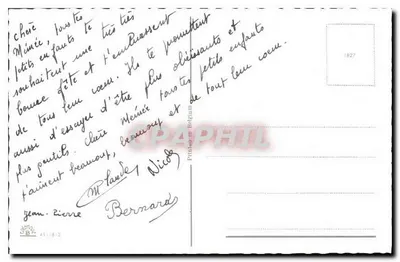 Chère
Mémée, tous tes
petits enfants te
souhaitent une très très
bonne fête et t'embrassent
de tout leur cœur. Ils te promettent
aussi d'essayer d'être plus obéissants et
plus gentils. Chère Mémée tous tes petits enfants
t'aiment beaucoup, beaucoup et de tout leur cœur.
Claude Nicole
Jean-Pierre Bernard
CPAPHIL.com